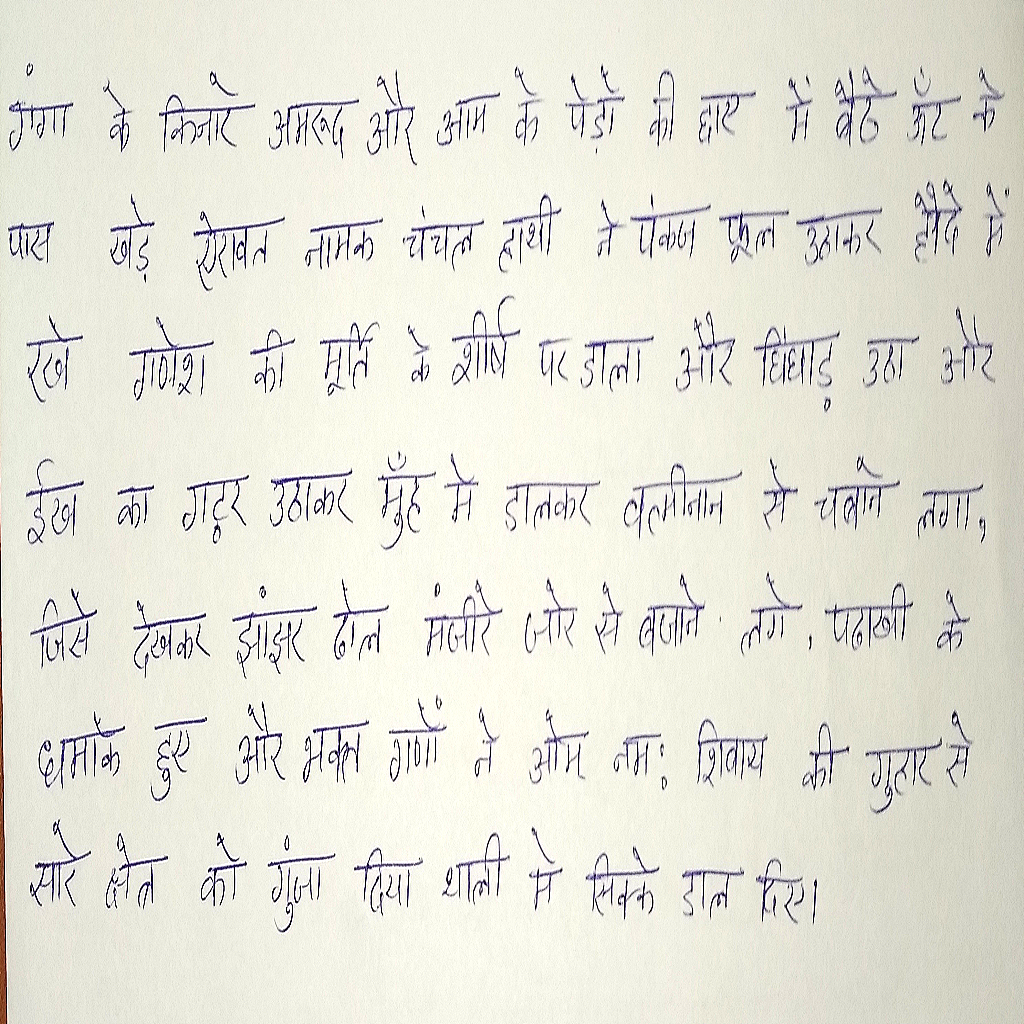 गंगा के किनारे अमरूद और आम के पेड़ों की छाए में बैठे ऊँट के
पास खड़े ऐरावत नामक चंचल हाथी ने पंकज फूल उठाकर हौदे में
रखे गणेश की मूर्ति के शीर्ष पर डाला और चिंघाड़ उठा और
ईख का गट्ठर उठाकर मुँह में डालकर से चबाने लगा,
जिसे देखकर झांझर ढोल मंजीरे जोर से बजाने लगे, के
धमाके हुए और भक्त गणों ने ओम नमः शिवाय की गुहार से
सारे क्षेत्र को गुंजा दिया थाली में सिक्के डाल दिए।